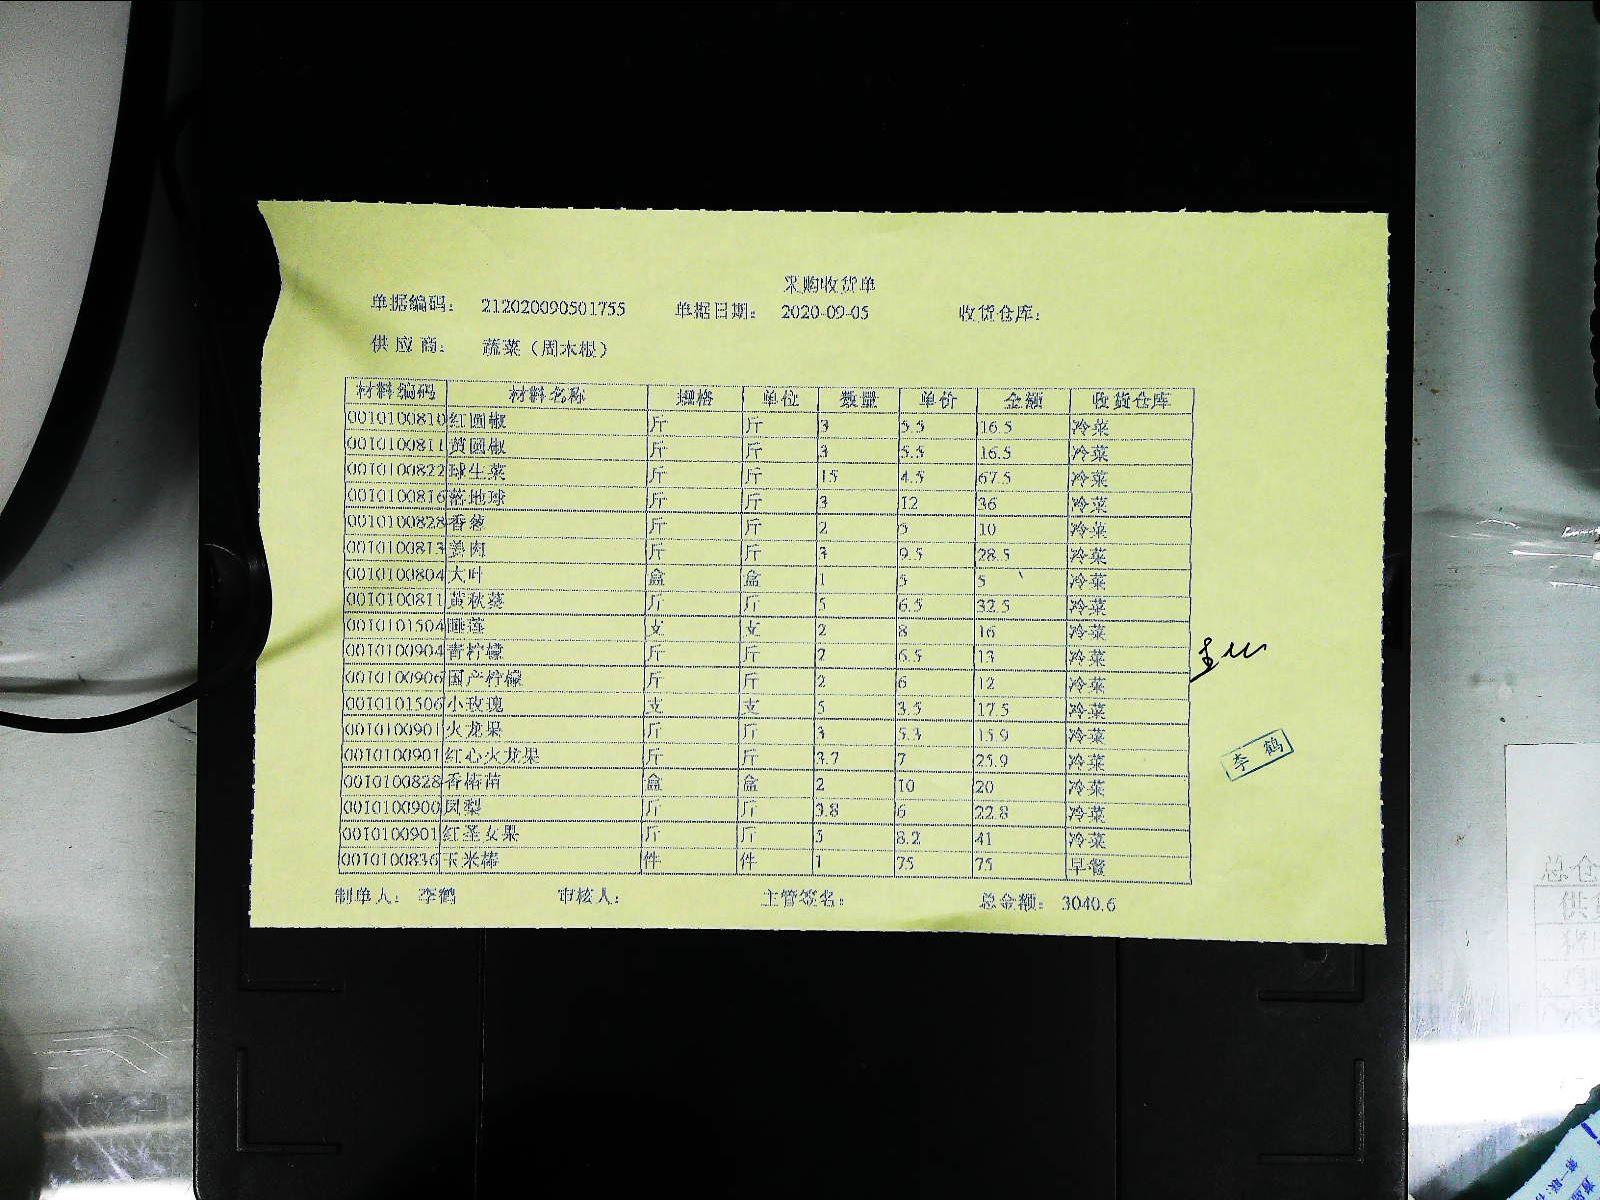 采购收货单
单据编码： 212020090501755 单据日期： 2020-09-05 收货仓库：
供应商： 蔬菜（周木根）
材料编码 材料名称 规格 单位 数量 单价 金额 收货仓库
0010100810 红圆椒 斤 斤 3 5.5 16.5 冷菜
0010100811 黄圆椒 斤 斤 3 5.5 16.5 冷菜
0010100822 球生菜 斤 斤 15 4.5 67.5 冷菜
0010100816 落地球 斤 斤 3 12 36 冷菜
0010100828 香葱 斤 斤 2 5 10 冷菜
0010100813 姜肉 斤 斤 3 9.5 28.5 冷菜
0010100804 大叶 盒 盒 1 5 5 冷菜
0010100811 黄秋葵 斤 斤 5 6.5 32.5 冷菜
0010101504 睡莲 支 支 2 8 16 冷菜
0010100904 青柠檬 斤 斤 2 6.5 13 冷菜
0010100906 国产柠檬 斤 斤 2 6 12 冷菜
0010101506 小玫瑰 支 支 5 3.5 17.5 冷菜
0010100901 火龙果 斤 斤 3 5.3 15.9 冷菜
0010100901 红心火龙果 斤 斤 3.7 7 25.9 冷菜
0010100828 香椿苗 盒 盒 2 10 20 冷菜
0010100900 凤梨 斤 斤 3.8 6 22.8 冷菜
0010100901 红圣女果 斤 斤 5 8.2 41 冷菜
0010100836 玉米棒 件 件 1 75 75 早餐
制单人： 李鹤 审核人： 主管签名： 总金额： 3040.6
李鹤
总仓